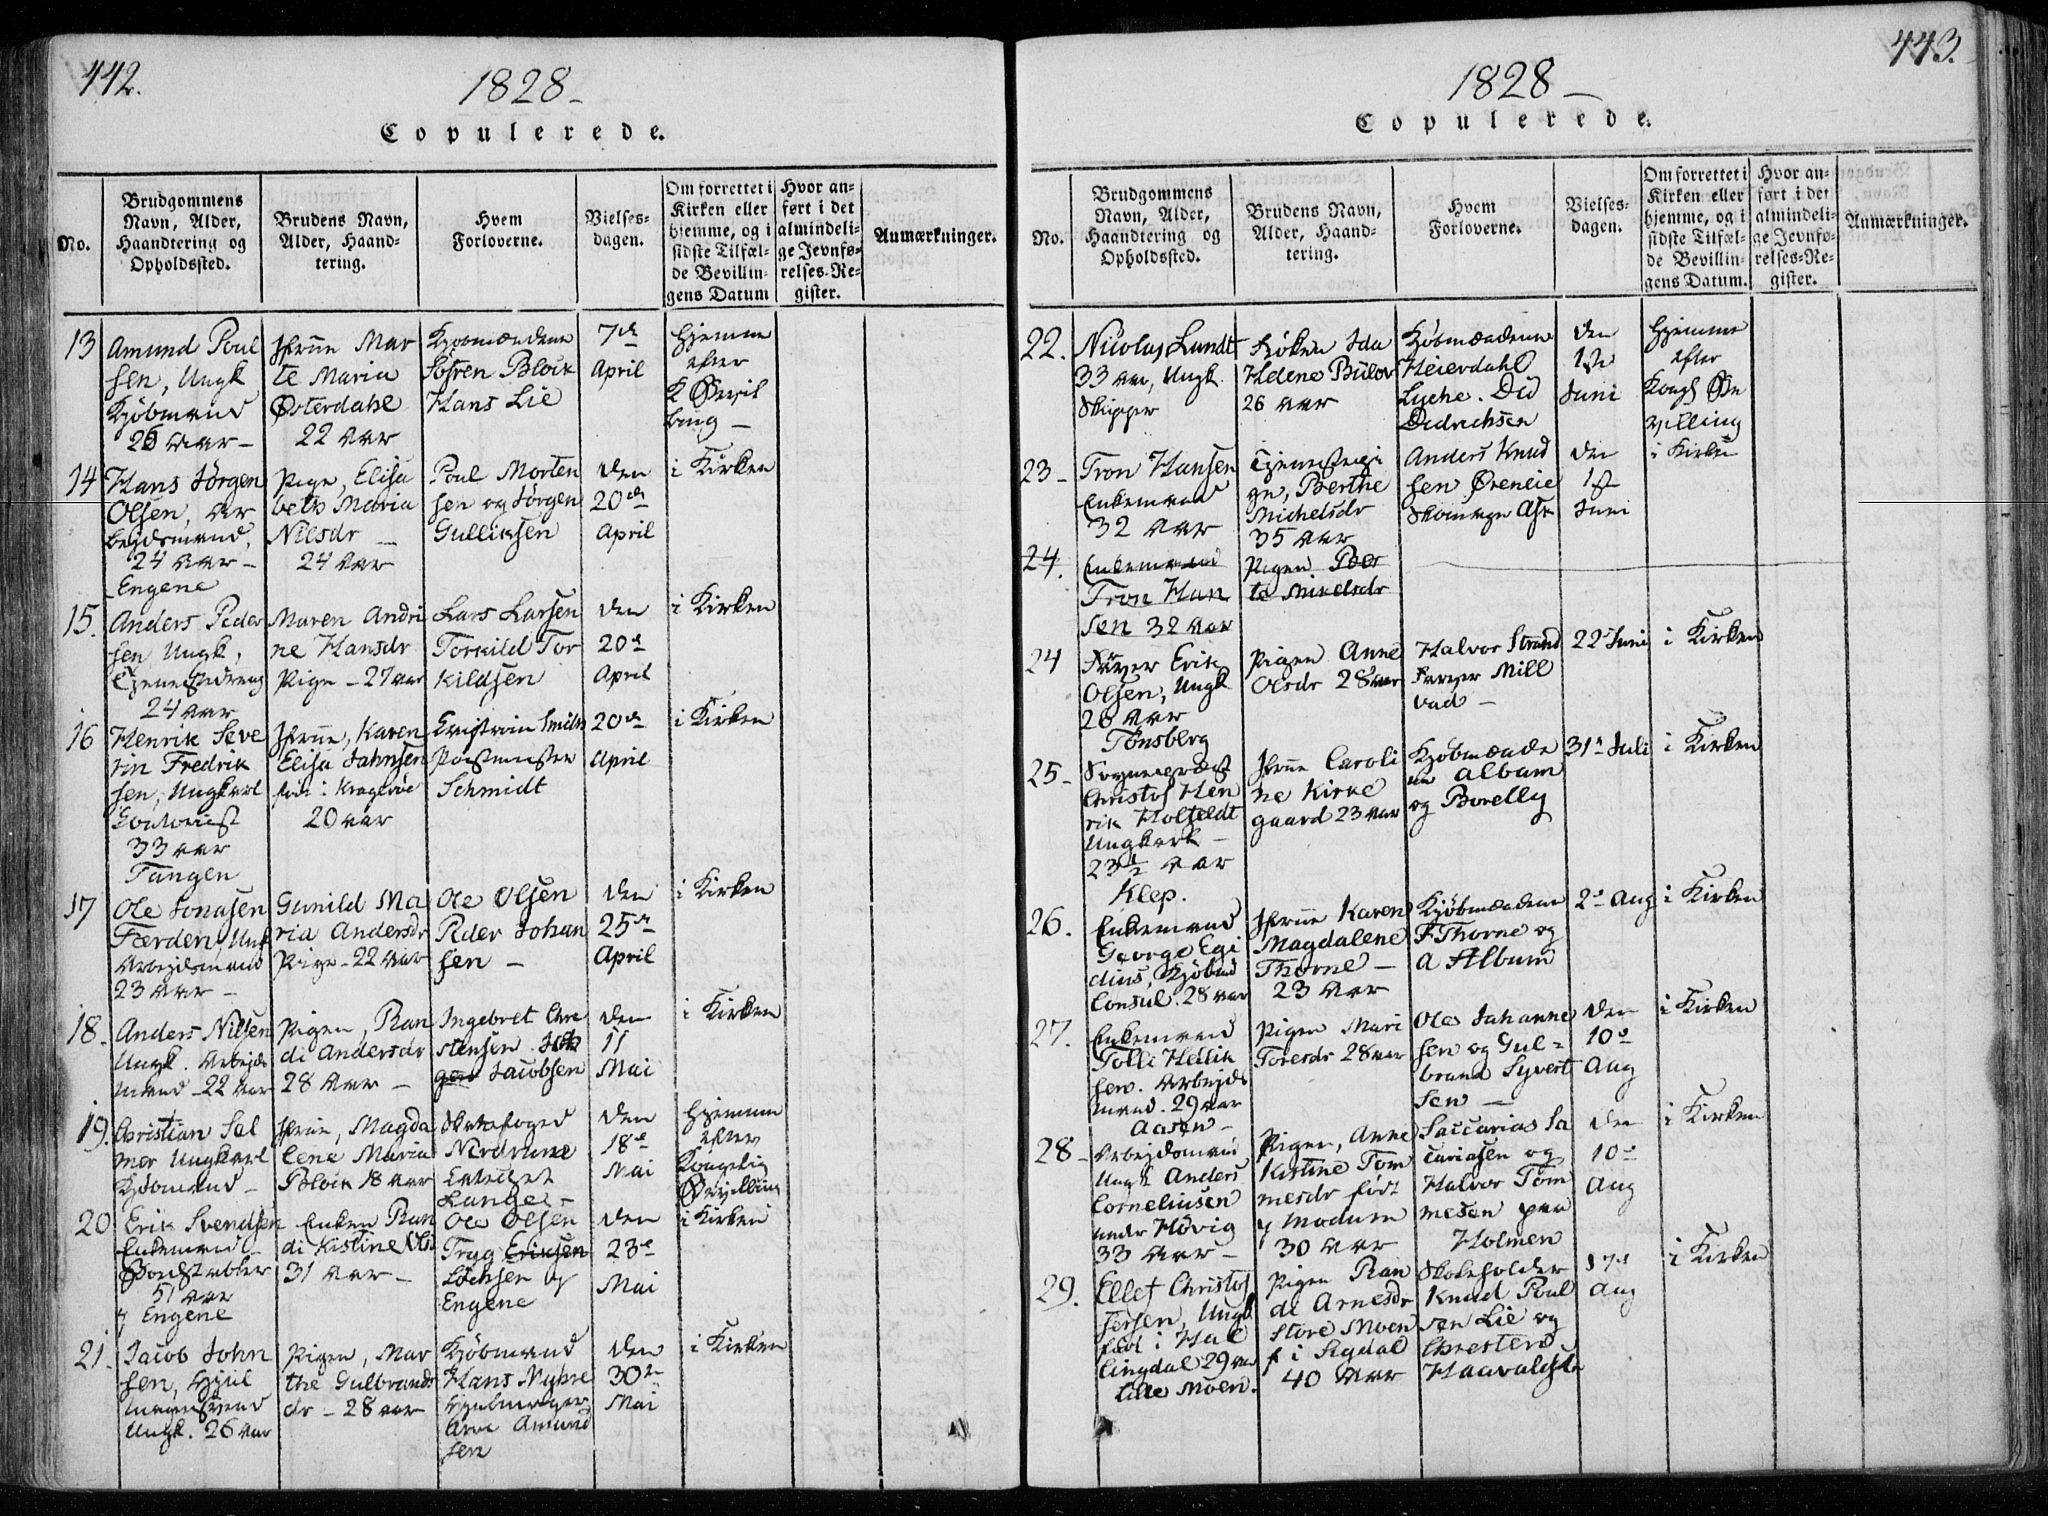 442.
1828 –
Copulerede.
No.
Brudgommens
Navn, Alder,
Haandtering og
Opholdssted.
Brudens Navn,
Alder, Haand-
tering.
Hvem
Forloverne.
Vielses-
dagen.
Om forrettet i
Kirken eller
hjemme, og i
sidste Tilfæl-
de Bevillin-
gens Datum
Hvor an-
ført i det
almindeli-
ge Jevnfø-
relses-Re-
gister.
Anmærkninger.
13
Amund Poul
sen, Ungk
Kjöbmand
26 Aar –
Jfrue Mar
te Maria
Østerdahl
22 Aar
Kjöbmændene
Sören Blok
Hans Lie
7de
April
Hjemme
efter
14
Hans Jörgen
Olsen, Ar
bejdsmand,
24 Aar –
Engene
Pige, Elisa
beth Maria
Nilsdr –
24 Aar
Poul Morten
sen og Jörgen
Gulliksen
den
20de
April
i Kirken
15.
Anders Peder
sen Ungk,
Tjenestedreng
24 Aar
Maren Andri
ne Hansdr
Pige – 27 Aar
Lars Larsen
Torkild Tor
kildsen
den
20d
April
i Kirken
16
Henrik Seve
rin Fredrik
sen, Ungkarl
33 Aar
Tangen
Jfrue, Karen
Elisa Jahnsen
20 Aar
Smith
Postmester
Schmidt
20de
April
i Kirken
17
Ole Jonasen
Færden, Unk
Arbejdsmand
23 Aar –
Gunild Ma
ria Andersdr
Pige – 22 Aar
Ole Olsen
Peder Johan
sen –
den
25de
April
i Kirken
18.
Anders Nilsen
Ungk. Arbejds
mand – 22 Aar
Pigen, Ran
di Andersdr
28 Aar –
Ingebret Chri
stensen
Jacobsen
den
11
Mai
i Kirken
19.
Christian Sal
mer Ungkarl
Kjöbmand –
Jfrue, Magda
lene Maria
Blok 18 Aar
Lange –
den
18de
Mai
Hjemme
efter
Kongelig
Bevilling
20
Erik Svendsen
Enkemand –
51 Aar
Engene
Enken Ran
di Kistine Ols
31 Aar –
Ole Olsen
Tryg Eriksen
Engene
den
23de
Mai
i Kirken
21.
Jacob John
sen,
Ungk. 26 Aar
Pigen, Mar
the Gulbrands
dr – 28 Aar
Kjöbmand
Hans Myhre
Arne Amund
sen
den
30te
Mai
i Kirken
443.
1828 –
Copulerede.
No.
Brudgommens
Navn, Alder,
Haandtering og
Opholdssted.
Brudens Navn,
Alder, Haand-
tering.
Hvem
Forloverne.
Vielses-
dagen.
Om forrettet i
Kirken eller
hjemme, og i
sidste Tilfæl-
de Bevillin-
gens Datum.
Hvor an-
ført i det
almindeli-
ge Jevnfø-
relses-Re-
gister.
Anmærkninger.
22.
Nicolaj Lundt
33 Aar, Ungk.
Skipper
Fröken Ida
Helene Bülow
26 Aar
Kjöbmændene
Heierdahl
Lyche. Did
Didrichsen
den
1ste
Juni
Hjemme
efter
Kongl Be
villing
23 –
Tron Hansen
Enkemand
32 Aar
Tjenestepi
ge, Berthe
Michelsdr
35 Aar
Anders Knud
sen
den
1st
Juni
i Kirken
24.
Enkemand
Tron Han
sen 32 Aar
Pigen Ber
te Mikelsdr
24
Farver Erik
Olsen, Ungk
28 Aar
Tönsberg
Pigen Anne
Olsdr 28 Aar
Halvor Strand
Farver Mill
vad –
22 Juni
i Kirken
25 –
Christof Hen
rik Holfeldt
Ungkarl –
23½ Aar
Klep.
Jfrue Caroli
ne Kirke
gaard 23 Aar
Kjöbmænde
ne Album
og Borelly
31 Juli
i Kirken
26.
Enkemand
George Egi
dius, Kjöbmd
Consul. 28 Aar
Jfrue Karen
Magdalene
Thorne –
23 Aar
Kjöbmændene
F Thorne og
A Album
2 Aug
i Kirken
27.
Enkemand
Tolli Hellik
sen. Arbejds
mand. 29 Aar
Aasen –
Pigen Mari
Toresdr 28 Aar
Ole Johanne
sen og Gul=
brand Syvert
sen –
den
10de
Aug
i Kirken
28 –
Arbejdsmand
Ungk Anders
Corneliusen
under Hövig
33 Aar –
Pigen, Anne
Kistine Tom
mesdr född
Modum
30 Aar
Saccarias Sa
cariasen og
Halvor Tom
mesen paa
Holmen
den
10de
Aug
i Kirken
29.
Ellef Christof
fersen, Ungk
född i Hal
lingdal 29 Aar
Lille Moen.
Pigen Ran
di Arnesdr
Store Moen
f i Sigdal
40 Aar
Skoleholder
Knud Poul
sen Lie og
Christen
17de
Aug
i Kirken